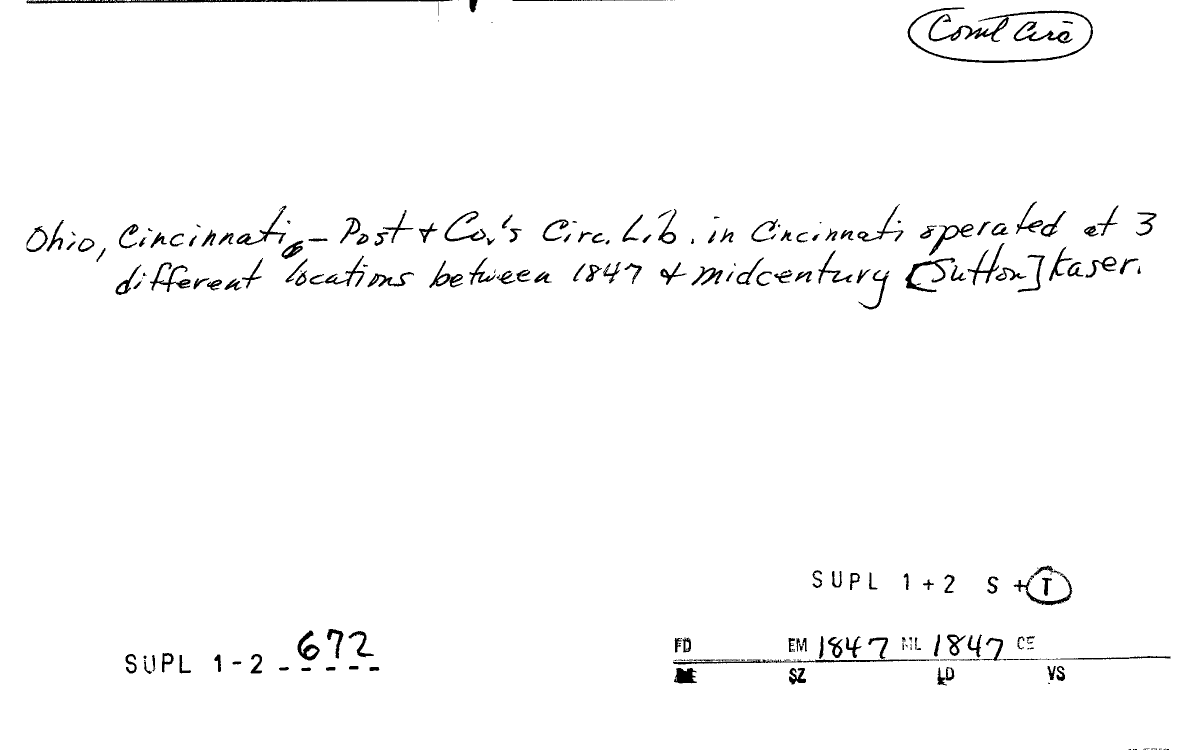 Coml Circ
Ohio, Cincinnati - Post + Co.'s Circ. Lib. in Cincinnati operated at 3
different locations between 1847 & midcentury [Sutton] Kaser.
SUPL 1+2 S+T
SUPL 1-2 672
FD EM 1847 ML 1847 CE
SZ LD VS